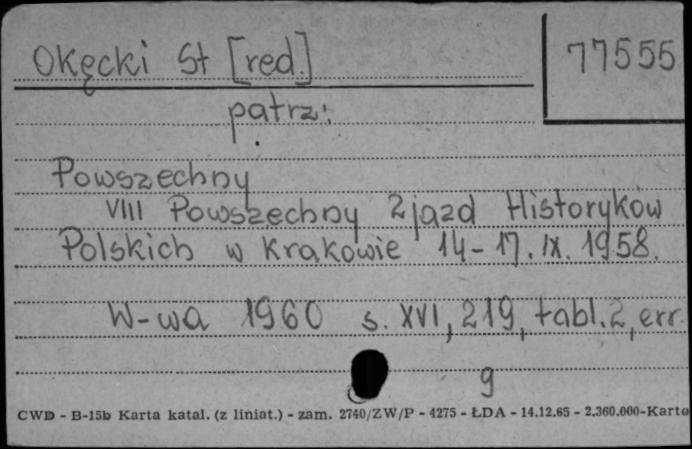 Okęcki St [red.] 77555
patrz:
Powszechny
VIII Powszechny Zjazd Historyków
Polskich w Krakowie 14-17.IX.1958.
W-wa 1960 s. XVI, 219, tabl. 2, err.
9
CWD - B-15b Karta katal. (z liniat.) - zam. 2740/ZW/P - 4275 - ŁDA - 14.12.65 - 2.360.000-Karto